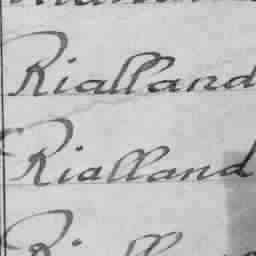 Rialland
Rialland